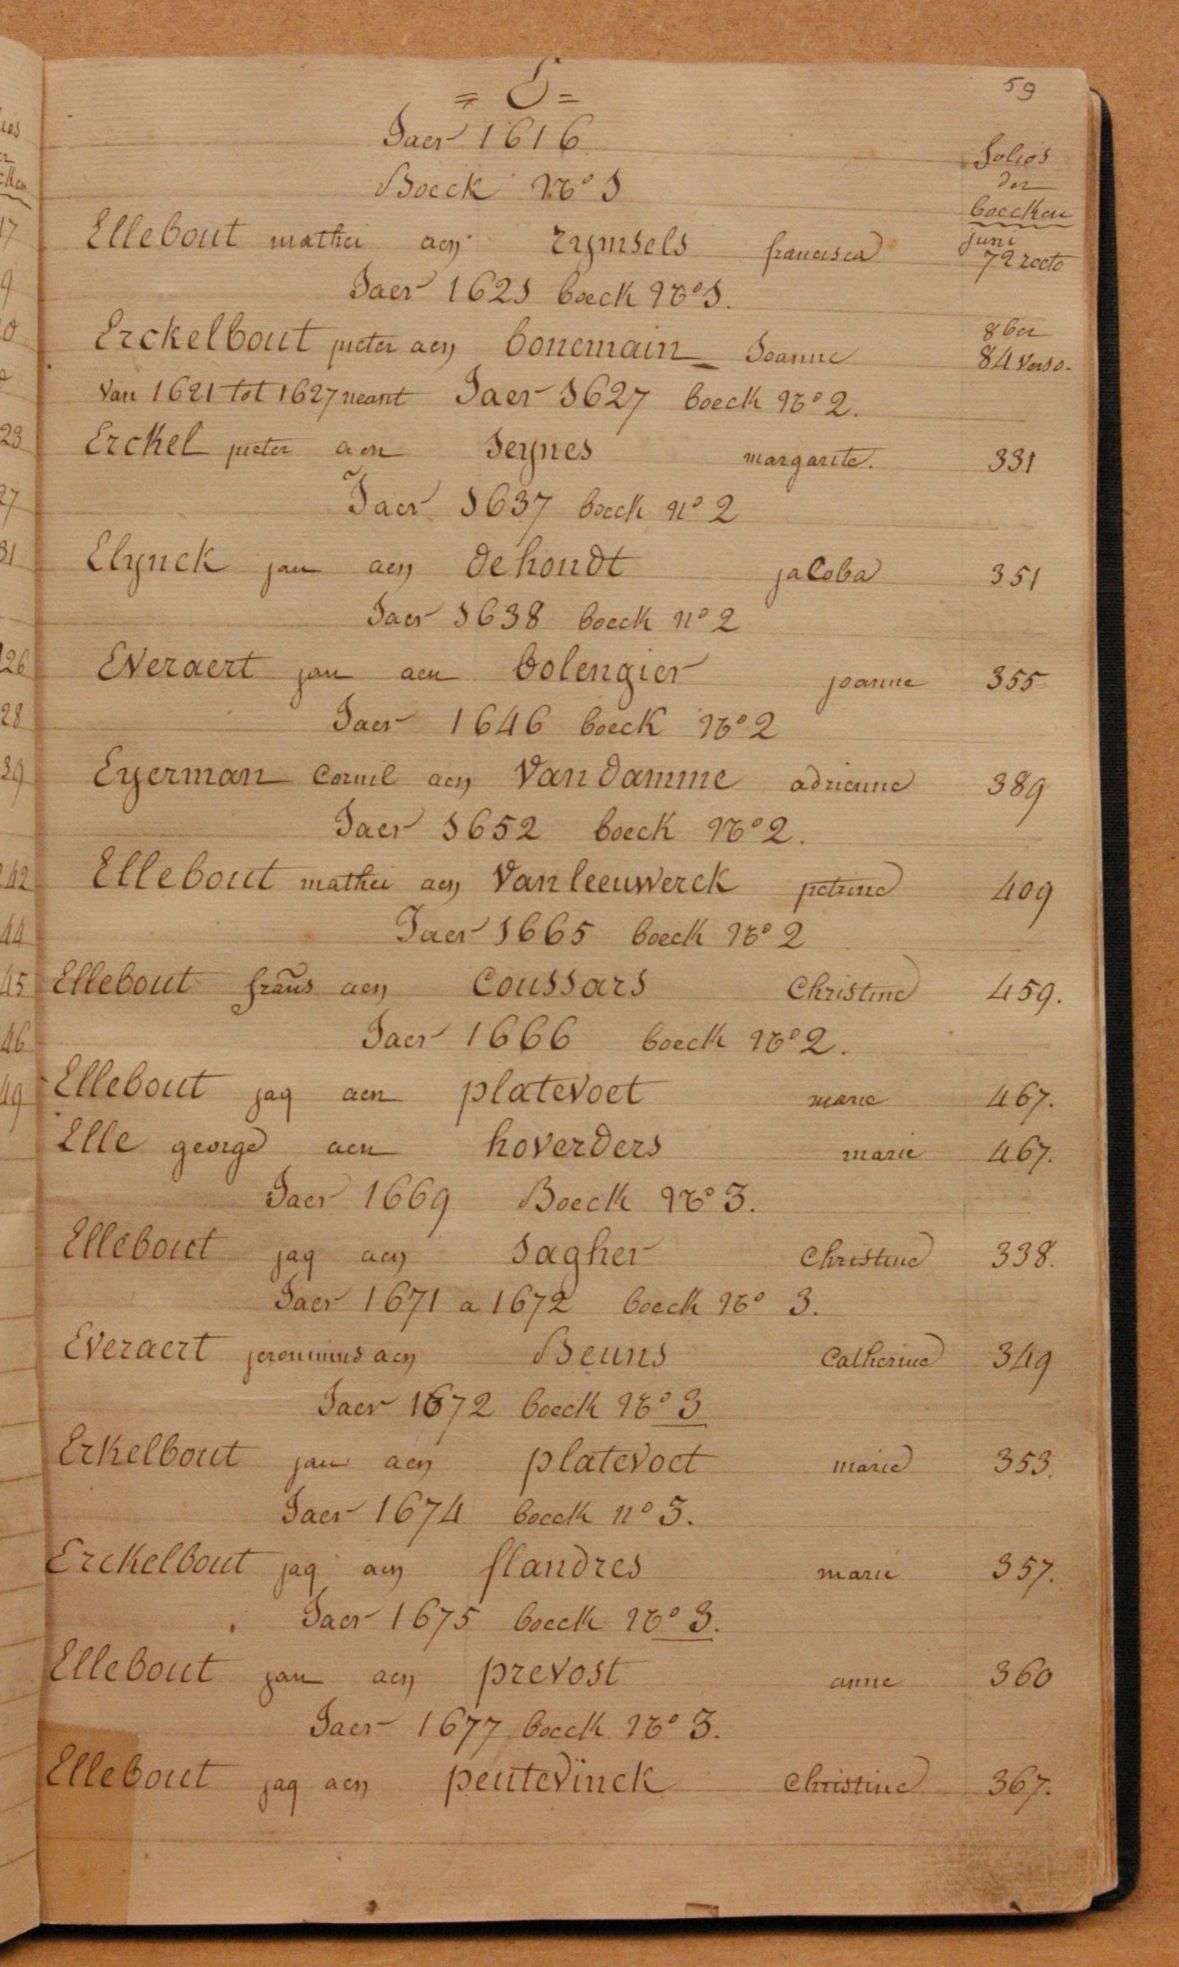 59
= E =
Jaer 1616
Boeck No 1
folios
der
boecken
Ellebout mathei aen rymsels francisca juni 72 recto
Jaer 1621 boeck No 1.
Erckelbout pieter aen bonemain Joanne 8ber 84 verso.
Van 1621 tot 1627 neant Jaer 1627 boeck No 2.
Erckel pieter aen seynes margarite. 331
Jaer 1637 boeck no 2
Elynck jan aen dehondt jacoba 351
Jaer 1638 boeck no 2
Everaert jan aen bolengier joanne 355
Jaer 1646 boeck No 2
Eyerman Cornil aen Van damme adrienne 389
Jaer 1652 boeck No 2.
Ellebout mathei aen Van leeuwerck petrine 409
Jaer 1665 boeck No 2
Ellebout frans aen Coussars Christine 459.
Jaer 1666 boeck No 2.
Ellebout jaq aen platevoet marie 467.
Elle george aen hoverders marie 467.
Jaer 1669 Boeck No 3.
Ellebout jaq aen sagher Christine 338.
Jaer 1671 a 1672 boeck No 3.
Everaert jeronimus aen Beuns Catherine 349
Jaer 1672 boeck No 3
Erkelbout jan aen platevoet marie 353.
Jaer 1674 boeck no 3.
Erckelbout jaq aen flandres marie 357.
Jaer 1675 boeck No 3.
Ellebout jan aen prevost anne 360
Jaer 1677 boeck No 3.
Ellebout jaq aen peutevinck Christine 367.